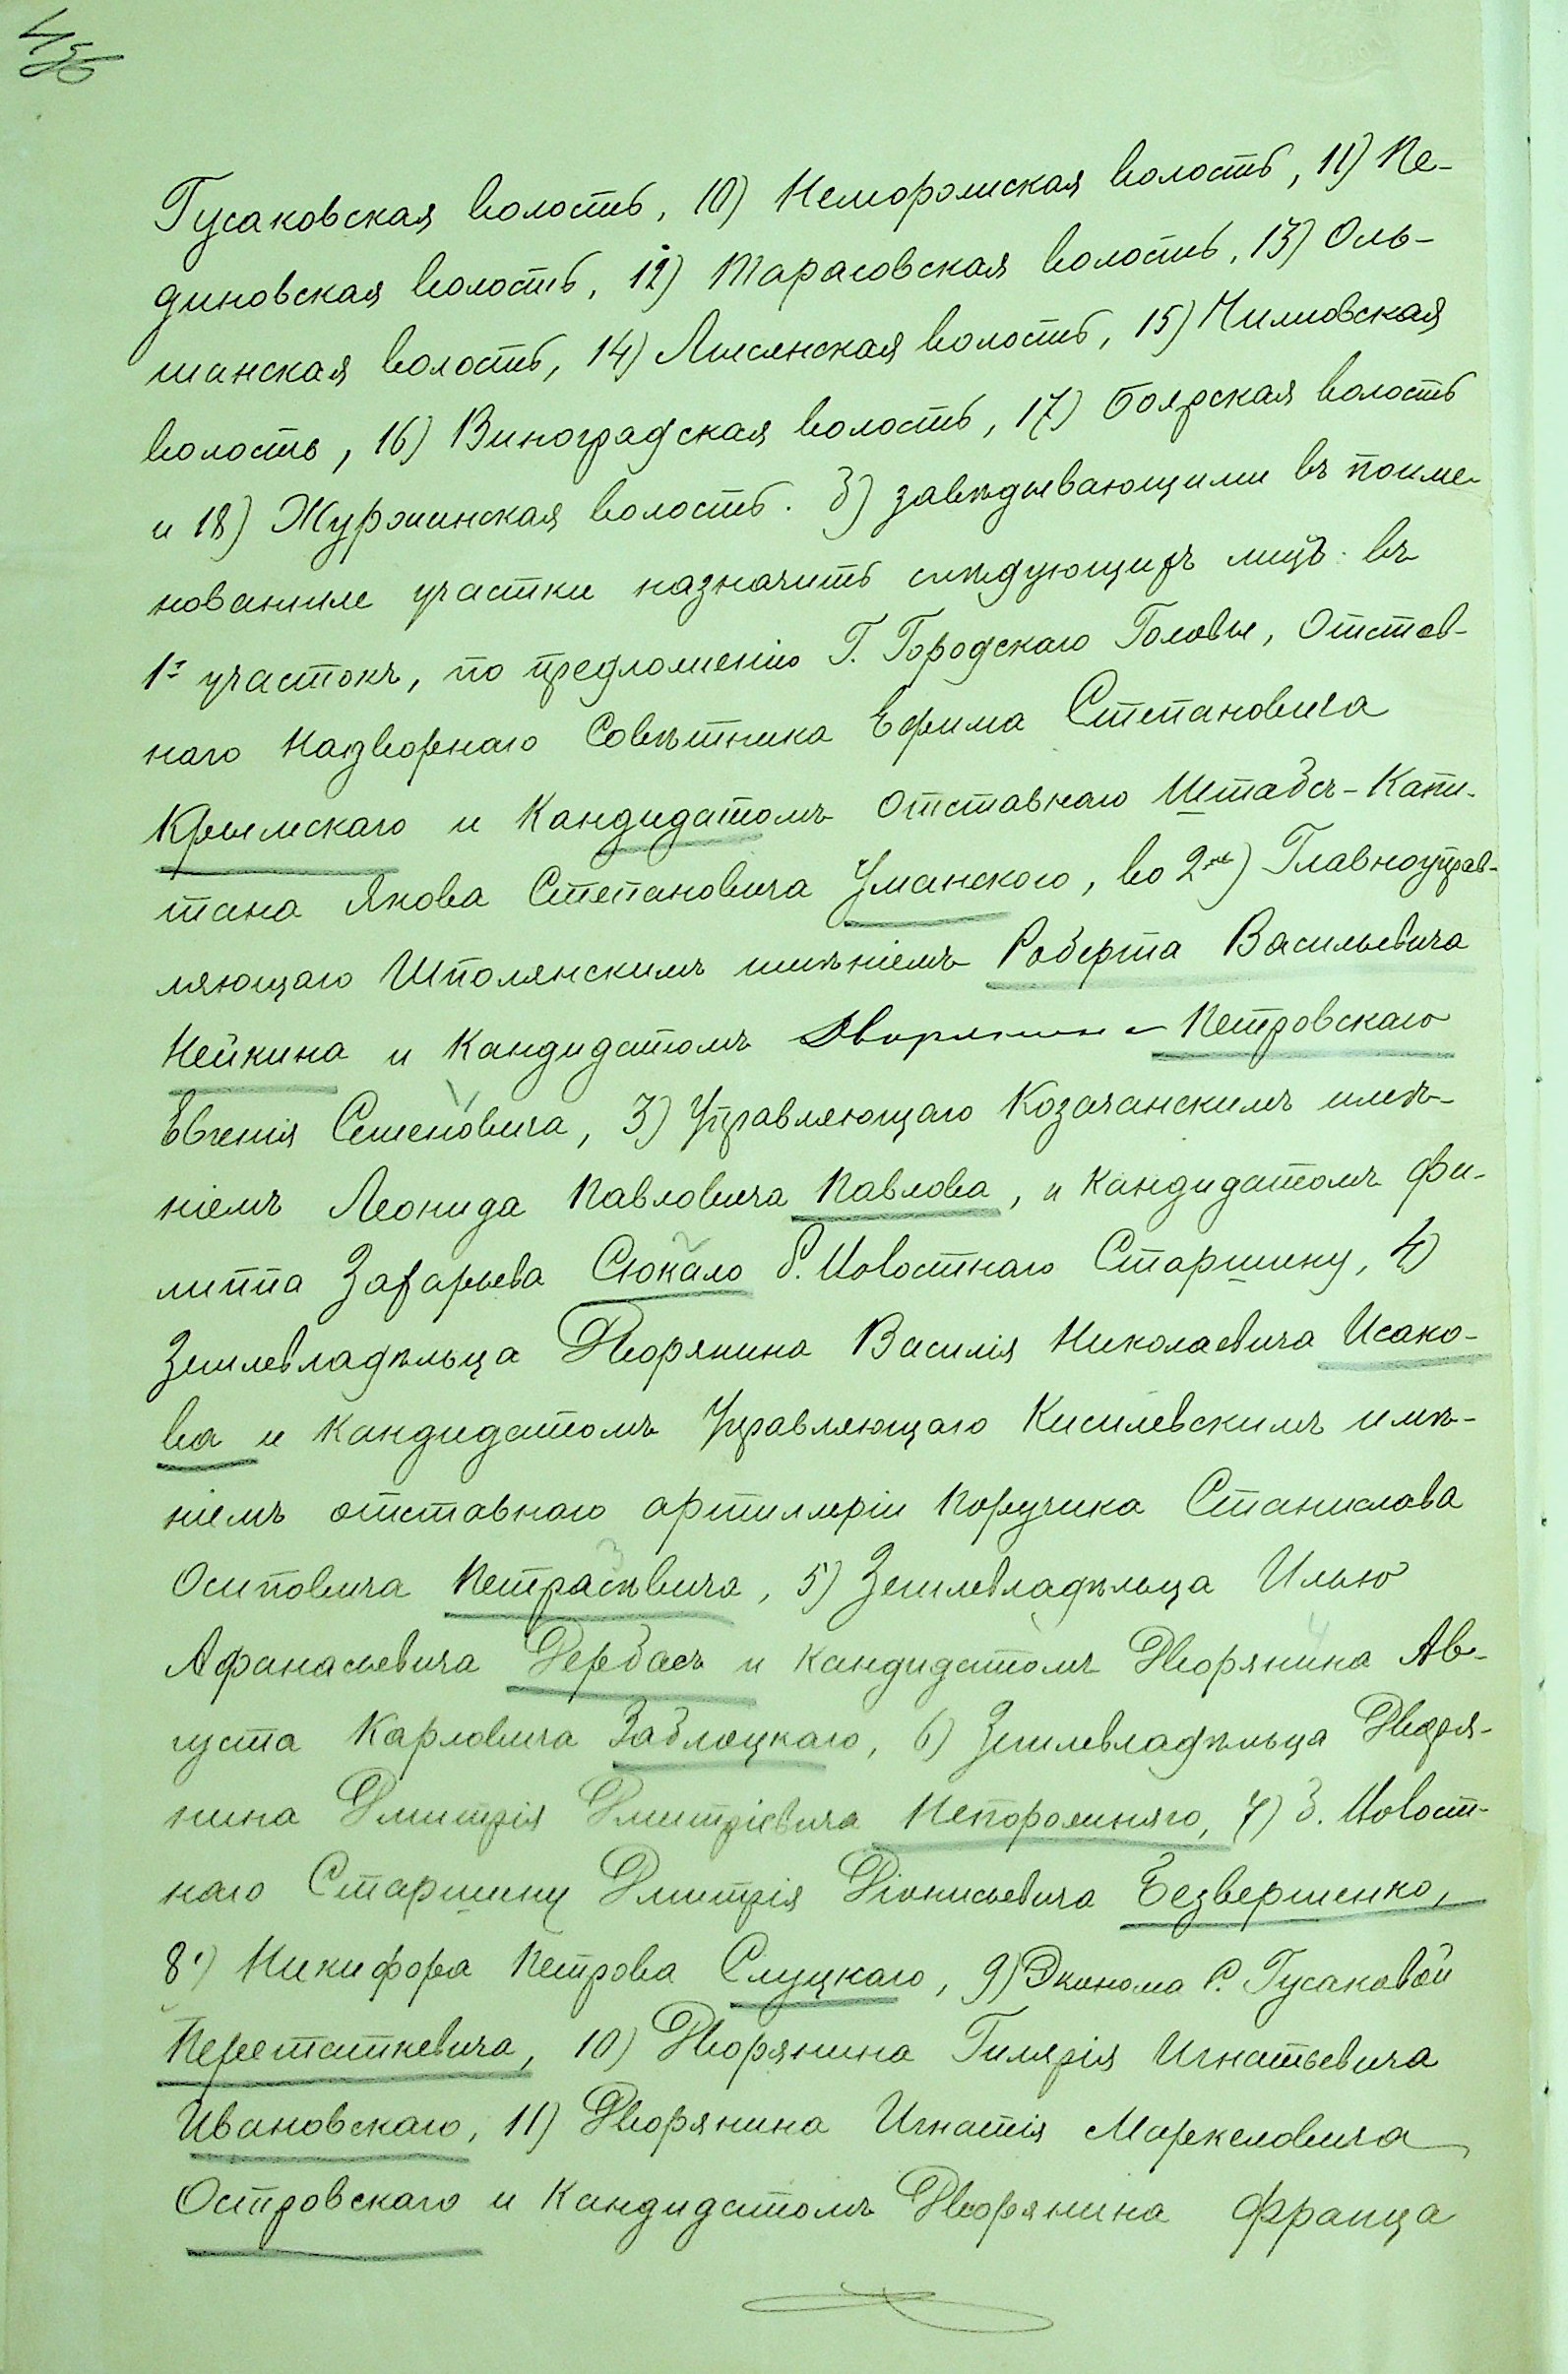 Гусаковская волость, 10) Неморожская волость, 11) Пе-
диновская волость, 12) Тарасовская волость, 13) Оль-
шанская волость, 14) Лисянская волость, 15) Чижовская
волость, 16) Виноградская волость, 17) Боярская волость
и 18) Журжинская волость. 3) завѣдывающими въ поиме-
нованные участки назначить слѣдующихъ лицъ: въ
1й участокъ, по предложенію Г. Городскаго Головы, Отстав-
наго Надворнаго Совѣтника Ефима Степановича
Крымскаго и Кандидатомъ отставнаго Штабсъ-Капи-
тана Якова Степановича Уманского, во 2й) Главноуправ-
ляющаго Шполянскимъ имѣніемъ Роберта Васильевича
Нейкина и Кандидатомъ Дворянина Петровскаго
Евгенія Семеновича, 3) Управляющаго Козачанскимъ имѣ-
ніемъ Леонида Павловича Павлова, и Кандидатомъ Фи-
липпа Захарьева Сюкало б. Волостнаго Старшину, 4)
Землевладѣльца Дворянина Василія Николаевича Исако-
ва и Кандидатомъ Управляющаго Кисилевскимъ имѣ-
ніемъ отставнаго артиллеріи Поручика Станислава
Осиповича Петрасѣвича, 5) Землевладѣльца Илью
Афанасьевича Дербасъ и Кандидатомъ Дворянина Ав-
густа Карловича Заблоцкаго, 6) Землевладѣльца Дворя-
нина Дмитрія Дмитріевича Непорожняго, 7) б. Волост-
наго Старшину Дмитрія Діонисьевича Безвершенко,
8) Никифора Петрова Слуцкаго, 9) Эконома С. Гусаковой
Перетяткевича, 10) Дворянина Гилярія Игнатьевича
Ивановскаго, 11) Дворянина Игнатія Маркеловича
Островскаго и Кандидатомъ Дворянина Франца